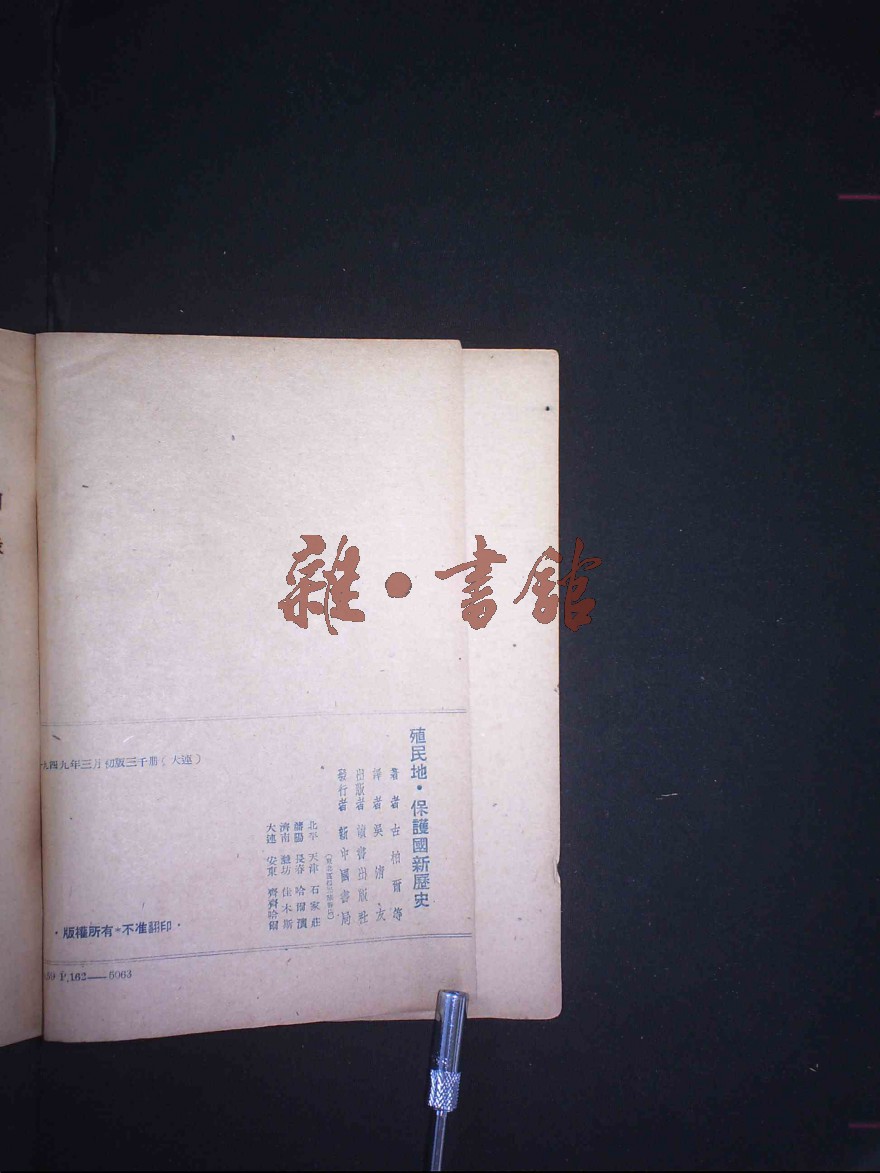 殖民地·保護國新歷史
著者 古柏爾等
譯者 吳清友
出版者 讀書出版社
發行者 新中國書局
北平 天津 石家莊
瀋陽 長春 哈爾濱
濟南 濰坊 佳木斯
大連 安東 齊齊哈爾
九四九年三月初版三千册(大連)
·版權所有·不准翻印·
59 P.162——5063
雜·書館